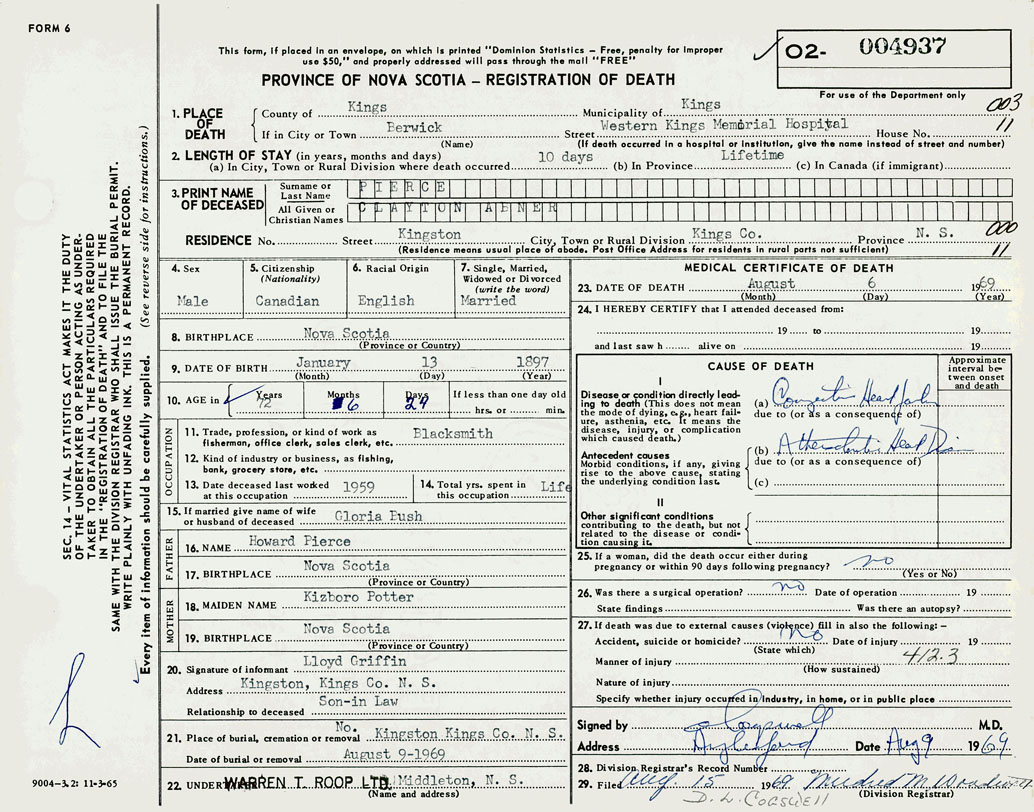 FORM 6
This form, if placed in an envelope, on which is printed "Dominion Statistics – Free, penalty for improper
use $50," and properly addressed will pass through the mail "FREE"
PROVINCE OF NOVA SCOTIA – REGISTRATION OF DEATH
O2- 004937
For use of the Department only
003
11
1. PLACE OF DEATH
County of Kings Municipality of Kings
If in City or Town Berwick Street Western Kings Memorial Hospital House No.
(Name) (If death occurred in a hospital or institution, give the name instead of street and number)
2. LENGTH OF STAY (in years, months and days)
(a) In City, Town or Rural Division where death occurred 10 days (b) In Province Lifetime (c) In Canada (if immigrant)
3. PRINT NAME OF DECEASED
Surname or Last Name PIERCE
All Given or Christian Names CLAYTON ABNER
000
RESIDENCE No. Street Kingston City, Town or Rural Division Kings Co. Province N. S.
(Residence means usual place of abode. Post Office Address for residents in rural parts not sufficient) 11
4. Sex Male
5. Citizenship (Nationality) Canadian
6. Racial Origin English
7. Single, Married, Widowed or Divorced (write the word) Married
8. BIRTHPLACE Nova Scotia
(Province or Country)
9. DATE OF BIRTH January 13 1897
(Month) (Day) (Year)
10. AGE in Years 72 Months 6 Days 24 If less than one day old
hrs. or min.
OCCUPATION
11. Trade, profession, or kind of work as fisherman, office clerk, sales clerk, etc. Blacksmith
12. Kind of industry or business, as fishing, bank, grocery store, etc.
13. Date deceased last worked at this occupation 1959
14. Total yrs. spent in this occupation Life
15. If married give name of wife or husband of deceased Gloria Bush
FATHER
16. NAME Howard Pierce
17. BIRTHPLACE Nova Scotia
(Province or Country)
MOTHER
18. MAIDEN NAME Kizboro Potter
19. BIRTHPLACE Nova Scotia
(Province or Country)
20. Signature of informant Lloyd Griffin
Address Kingston, Kings Co. N. S.
Relationship to deceased Son-in Law
No.
21. Place of burial, cremation or removal Kingston Kings Co. N. S.
Date of burial or removal August 9-1969
22. UNDERTAKER WARREN T. ROOP LTD. Middleton, N. S.
(Name and address)
MEDICAL CERTIFICATE OF DEATH
23. DATE OF DEATH August 6 1969
(Month) (Day) (Year)
24. I HEREBY CERTIFY that I attended deceased from:
19 to 19
and last saw h alive on 19
CAUSE OF DEATH
Approximate interval between onset and death
I
Disease or condition directly leading to death (This does not mean the mode of dying, e.g., heart failure, asthenia, etc. It means the disease, injury, or complication which caused death.)
(a) Heart
due to (or as a consequence of)
Antecedent causes
Morbid conditions, if any, giving rise to the above cause, stating the underlying condition last.
(b) Heart Dis
due to (or as a consequence of)
(c)
II
Other significant conditions contributing to the death, but not related to the disease or condition causing it.
25. If a woman, did the death occur either during pregnancy or within 90 days following pregnancy? no
(Yes or No)
26. Was there a surgical operation? no Date of operation 19
State findings Was there an autopsy?
27. If death was due to external causes (violence) fill in also the following: –
Accident, suicide or homicide? no Date of injury 19
(State which)
Manner of injury 412.3
(How sustained)
Nature of injury
Specify whether injury occurred in industry, in home, or in public place
Signed by Cogswell M.D.
Address Date Aug 9 1969
28. Division Registrar's Record Number
29. Filed Aug. 15 1969 Mildred M.
(Division Registrar)
D. L. COGSWELL
SEC. 14 – VITAL STATISTICS ACT MAKES IT THE DUTY
OF THE UNDERTAKER OR PERSON ACTING AS UNDER-
TAKER TO OBTAIN ALL THE PARTICULARS REQUIRED
IN THE "REGISTRATION OF DEATH" AND TO FILE THE
SAME WITH THE DIVISION REGISTRAR WHO SHALL ISSUE THE BURIAL PERMIT.
WRITE PLAINLY WITH UNFADING INK. THIS IS A PERMANENT RECORD.
Every item of information should be carefully supplied. (See reverse side for instructions.)
9004-3.2: 11-3-65